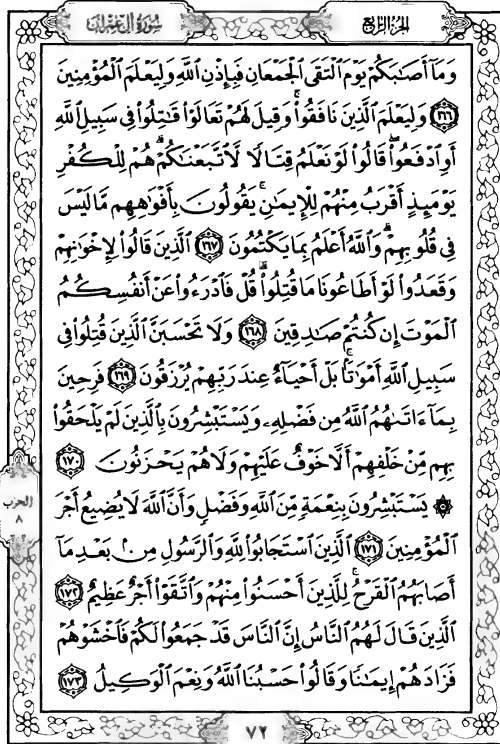 سُورَةُ آلِ عِمْرَان
الجُزْءُ الرَّابِعُ
وَمَآ أَصَٰبَكُمْ يَوْمَ ٱلْتَقَى ٱلْجَمْعَانِ فَبِإِذْنِ ٱللَّهِ وَلِيَعْلَمَ ٱلْمُؤْمِنِينَ
١٦٦ وَلِيَعْلَمَ ٱلَّذِينَ نَافَقُوا۟ ۚ وَقِيلَ لَهُمْ تَعَالَوْا۟ قَٰتِلُوا۟ فِى سَبِيلِ ٱللَّهِ
أَوِ ٱدْفَعُوا۟ ۖ قَالُوا۟ لَوْ نَعْلَمُ قِتَالًا لَّٱتَّبَعْنَٰكُمْ ۗ هُمْ لِلْكُفْرِ
يَوْمَئِذٍ أَقْرَبُ مِنْهُمْ لِلْإِيمَٰنِ ۚ يَقُولُونَ بِأَفْوَٰهِهِم مَّا لَيْسَ
فِى قُلُوبِهِمْ ۗ وَٱللَّهُ أَعْلَمُ بِمَا يَكْتُمُونَ ١٦٧ ٱلَّذِينَ قَالُوا۟ لِإِخْوَٰنِهِمْ
وَقَعَدُوا۟ لَوْ أَطَاعُونَا مَا قُتِلُوا۟ ۗ قُلْ فَٱدْرَءُوا۟ عَنْ أَنفُسِكُمُ
ٱلْمَوْتَ إِن كُنتُمْ صَٰدِقِينَ ١٦٨ وَلَا تَحْسَبَنَّ ٱلَّذِينَ قُتِلُوا۟ فِى
سَبِيلِ ٱللَّهِ أَمْوَٰتًۢا ۚ بَلْ أَحْيَآءٌ عِندَ رَبِّهِمْ يُرْزَقُونَ ١٦٩ فَرِحِينَ
بِمَآ ءَاتَىٰهُمُ ٱللَّهُ مِن فَضْلِهِۦ وَيَسْتَبْشِرُونَ بِٱلَّذِينَ لَمْ يَلْحَقُوا۟
بِهِم مِّنْ خَلْفِهِمْ أَلَّا خَوْفٌ عَلَيْهِمْ وَلَا هُمْ يَحْزَنُونَ ١٧٠
۞ يَسْتَبْشِرُونَ بِنِعْمَةٍ مِّنَ ٱللَّهِ وَفَضْلٍ وَأَنَّ ٱللَّهَ لَا يُضِيعُ أَجْرَ
ٱلْمُؤْمِنِينَ ١٧١ ٱلَّذِينَ ٱسْتَجَابُوا۟ لِلَّهِ وَٱلرَّسُولِ مِنۢ بَعْدِ مَآ
أَصَابَهُمُ ٱلْقَرْحُ ۚ لِلَّذِينَ أَحْسَنُوا۟ مِنْهُمْ وَٱتَّقَوْا۟ أَجْرٌ عَظِيمٌ ١٧٢
ٱلَّذِينَ قَالَ لَهُمُ ٱلنَّاسُ إِنَّ ٱلنَّاسَ قَدْ جَمَعُوا۟ لَكُمْ فَٱخْشَوْهُمْ
فَزَادَهُمْ إِيمَٰنًا وَقَالُوا۟ حَسْبُنَا ٱللَّهُ وَنِعْمَ ٱلْوَكِيلُ ١٧٣
الحزب
٨
٧٢